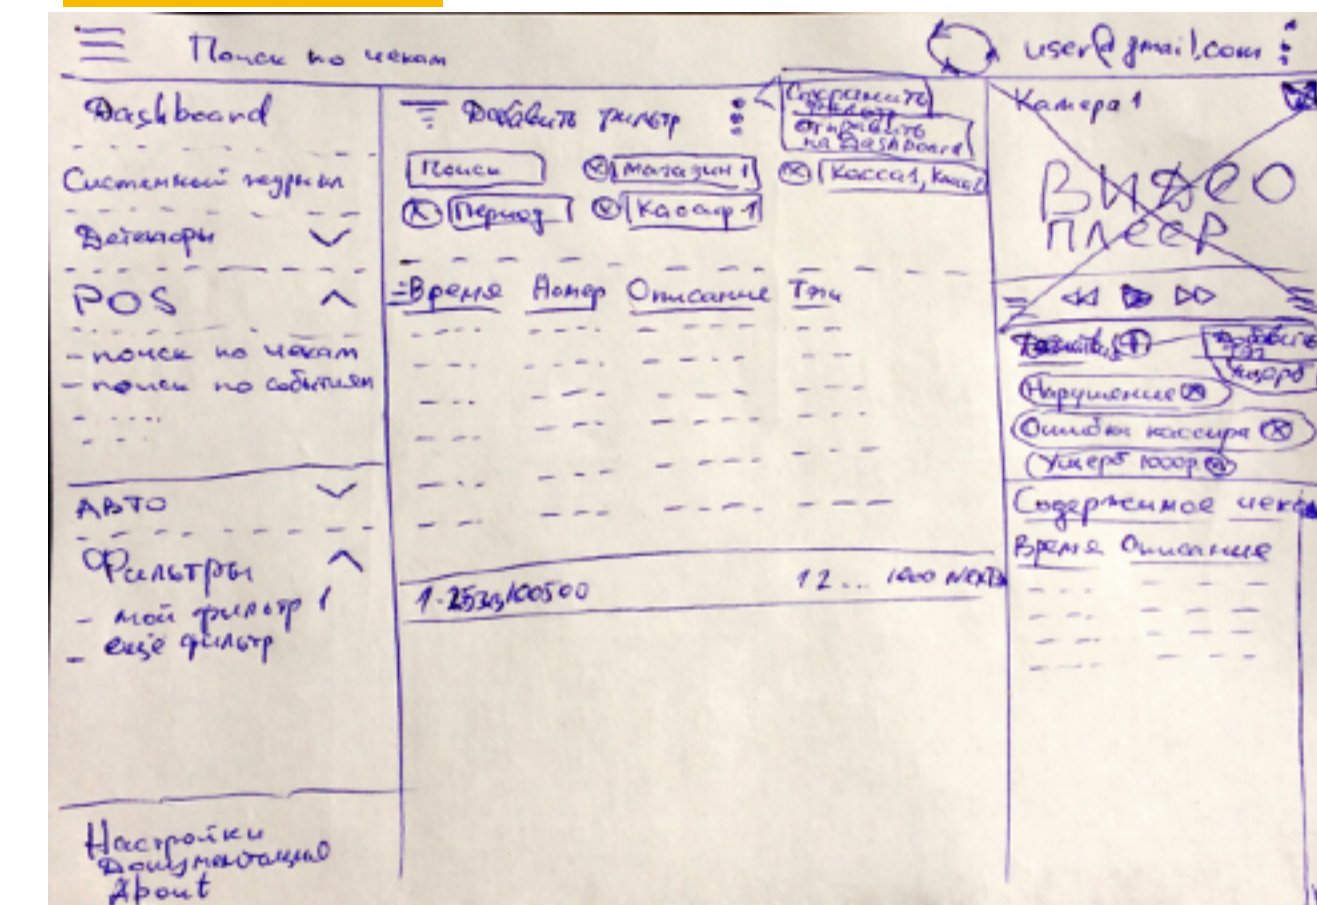 Поиск по чекам
user@gmail.com
Dashboard
Системный журнал
Детекторы
POS
- поиск по чекам
- поиск по событиям
АВТО
Фильтры
- мой фильтр 1
- ещё фильтр
Настройки
Документация
About
Добавить фильтр
Сохранить
фильтр
отправить
на Dashboard
Поиск
Магазин 1
Касса1, Касса2
Период
Кассир 1
Время Номер Описание Тэги
1-25из100500
1 2 ... 1000 NEXT>
Камера 1
ВИДЕО
ПЛЕЕР
Добавить
тэг
Ущерб
Нарушение
Ошибка кассира
Ущерб 1000р.
Содержимое чека
Время Описание